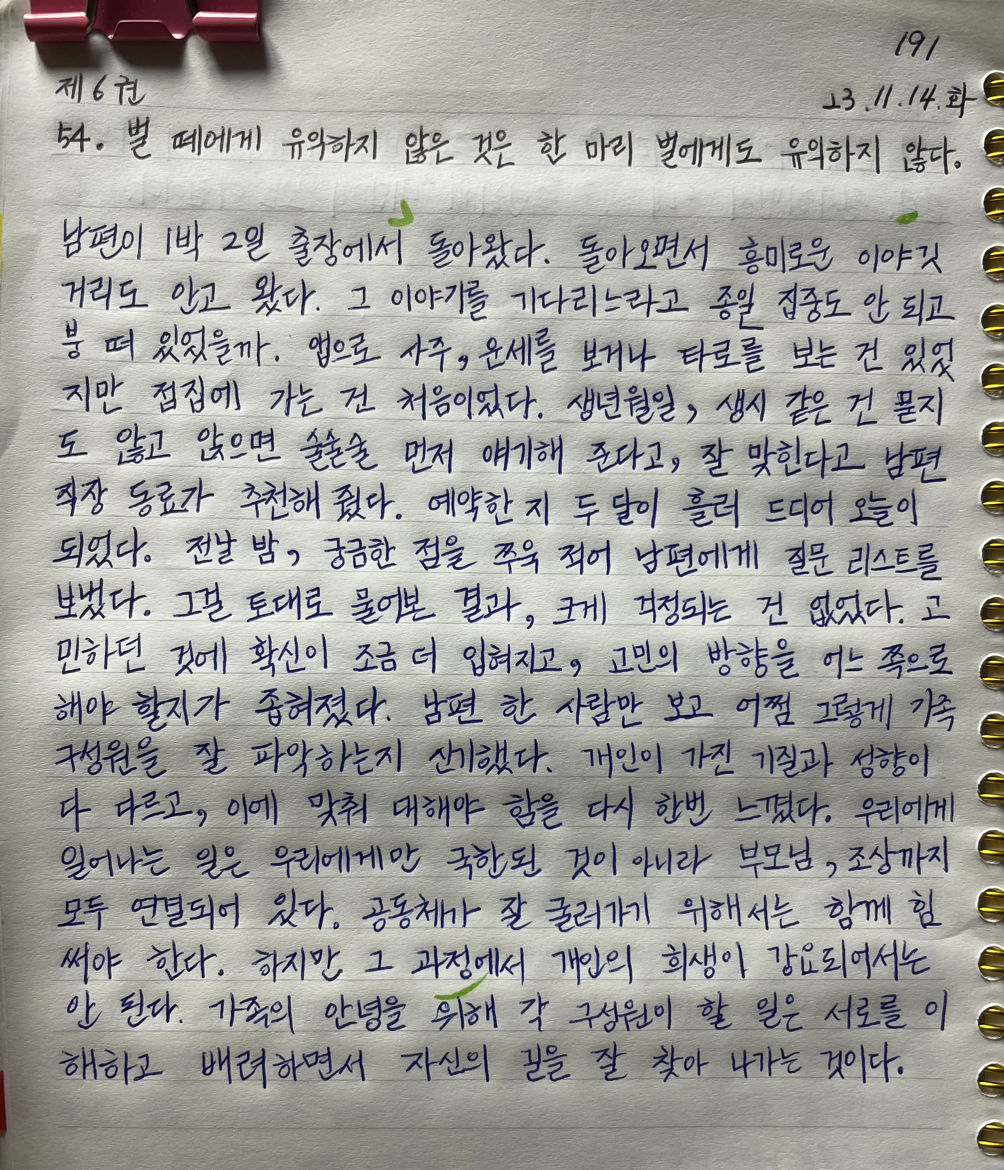 191
제6권
23.11.14.화
54. 벌 떼에게 유익하지 않은 것은 한 마리 벌에게도 유익하지 않다.
남편이 1박 2일 출장에서 돌아왔다. 돌아오면서 흥미로운 이야깃
거리도 안고 왔다. 그 이야기를 기다리느라고 종일 집중도 안 되고
붕 떠 있었을까. 앱으로 사주, 운세를 보거나 타로를 보는 건 있었
지만 점집에 가는 건 처음이었다. 생년월일, 생시 같은 건 묻지
도 않고 앉으면 술술술 먼저 얘기해 준다고, 잘 맞힌다고 남편
직장 동료가 추천해 줬다. 예약한 지 두 달이 흘러 드디어 오늘이
되었다. 전날 밤, 궁금한 점을 쭈욱 적어 남편에게 질문 리스트를
보냈다. 그걸 토대로 물어본 결과, 크게 걱정되는 건 없었다. 고
민하던 것에 확신이 조금 더 입혀지고, 고민의 방향을 어느 쪽으로
해야 할지가 좁혀졌다. 남편 한 사람만 보고 어쩜 그렇게 가족
구성원을 잘 파악하는지 신기했다. 개인이 가진 기질과 성향이
다 다르고, 이에 맞춰 대해야 함을 다시 한번 느꼈다. 우리에게
일어나는 일은 우리에게만 국한된 것이 아니라 부모님, 조상까지
모두 연결되어 있다. 공동체가 잘 굴러가기 위해서는 함께 힘
써야 한다. 하지만 그 과정에서 개인의 희생이 강요되어서는
안 된다. 가족의 안녕을 위해 각 구성원이 할 일은 서로를 이
해하고 배려하면서 자신의 길을 잘 찾아 나가는 것이다.